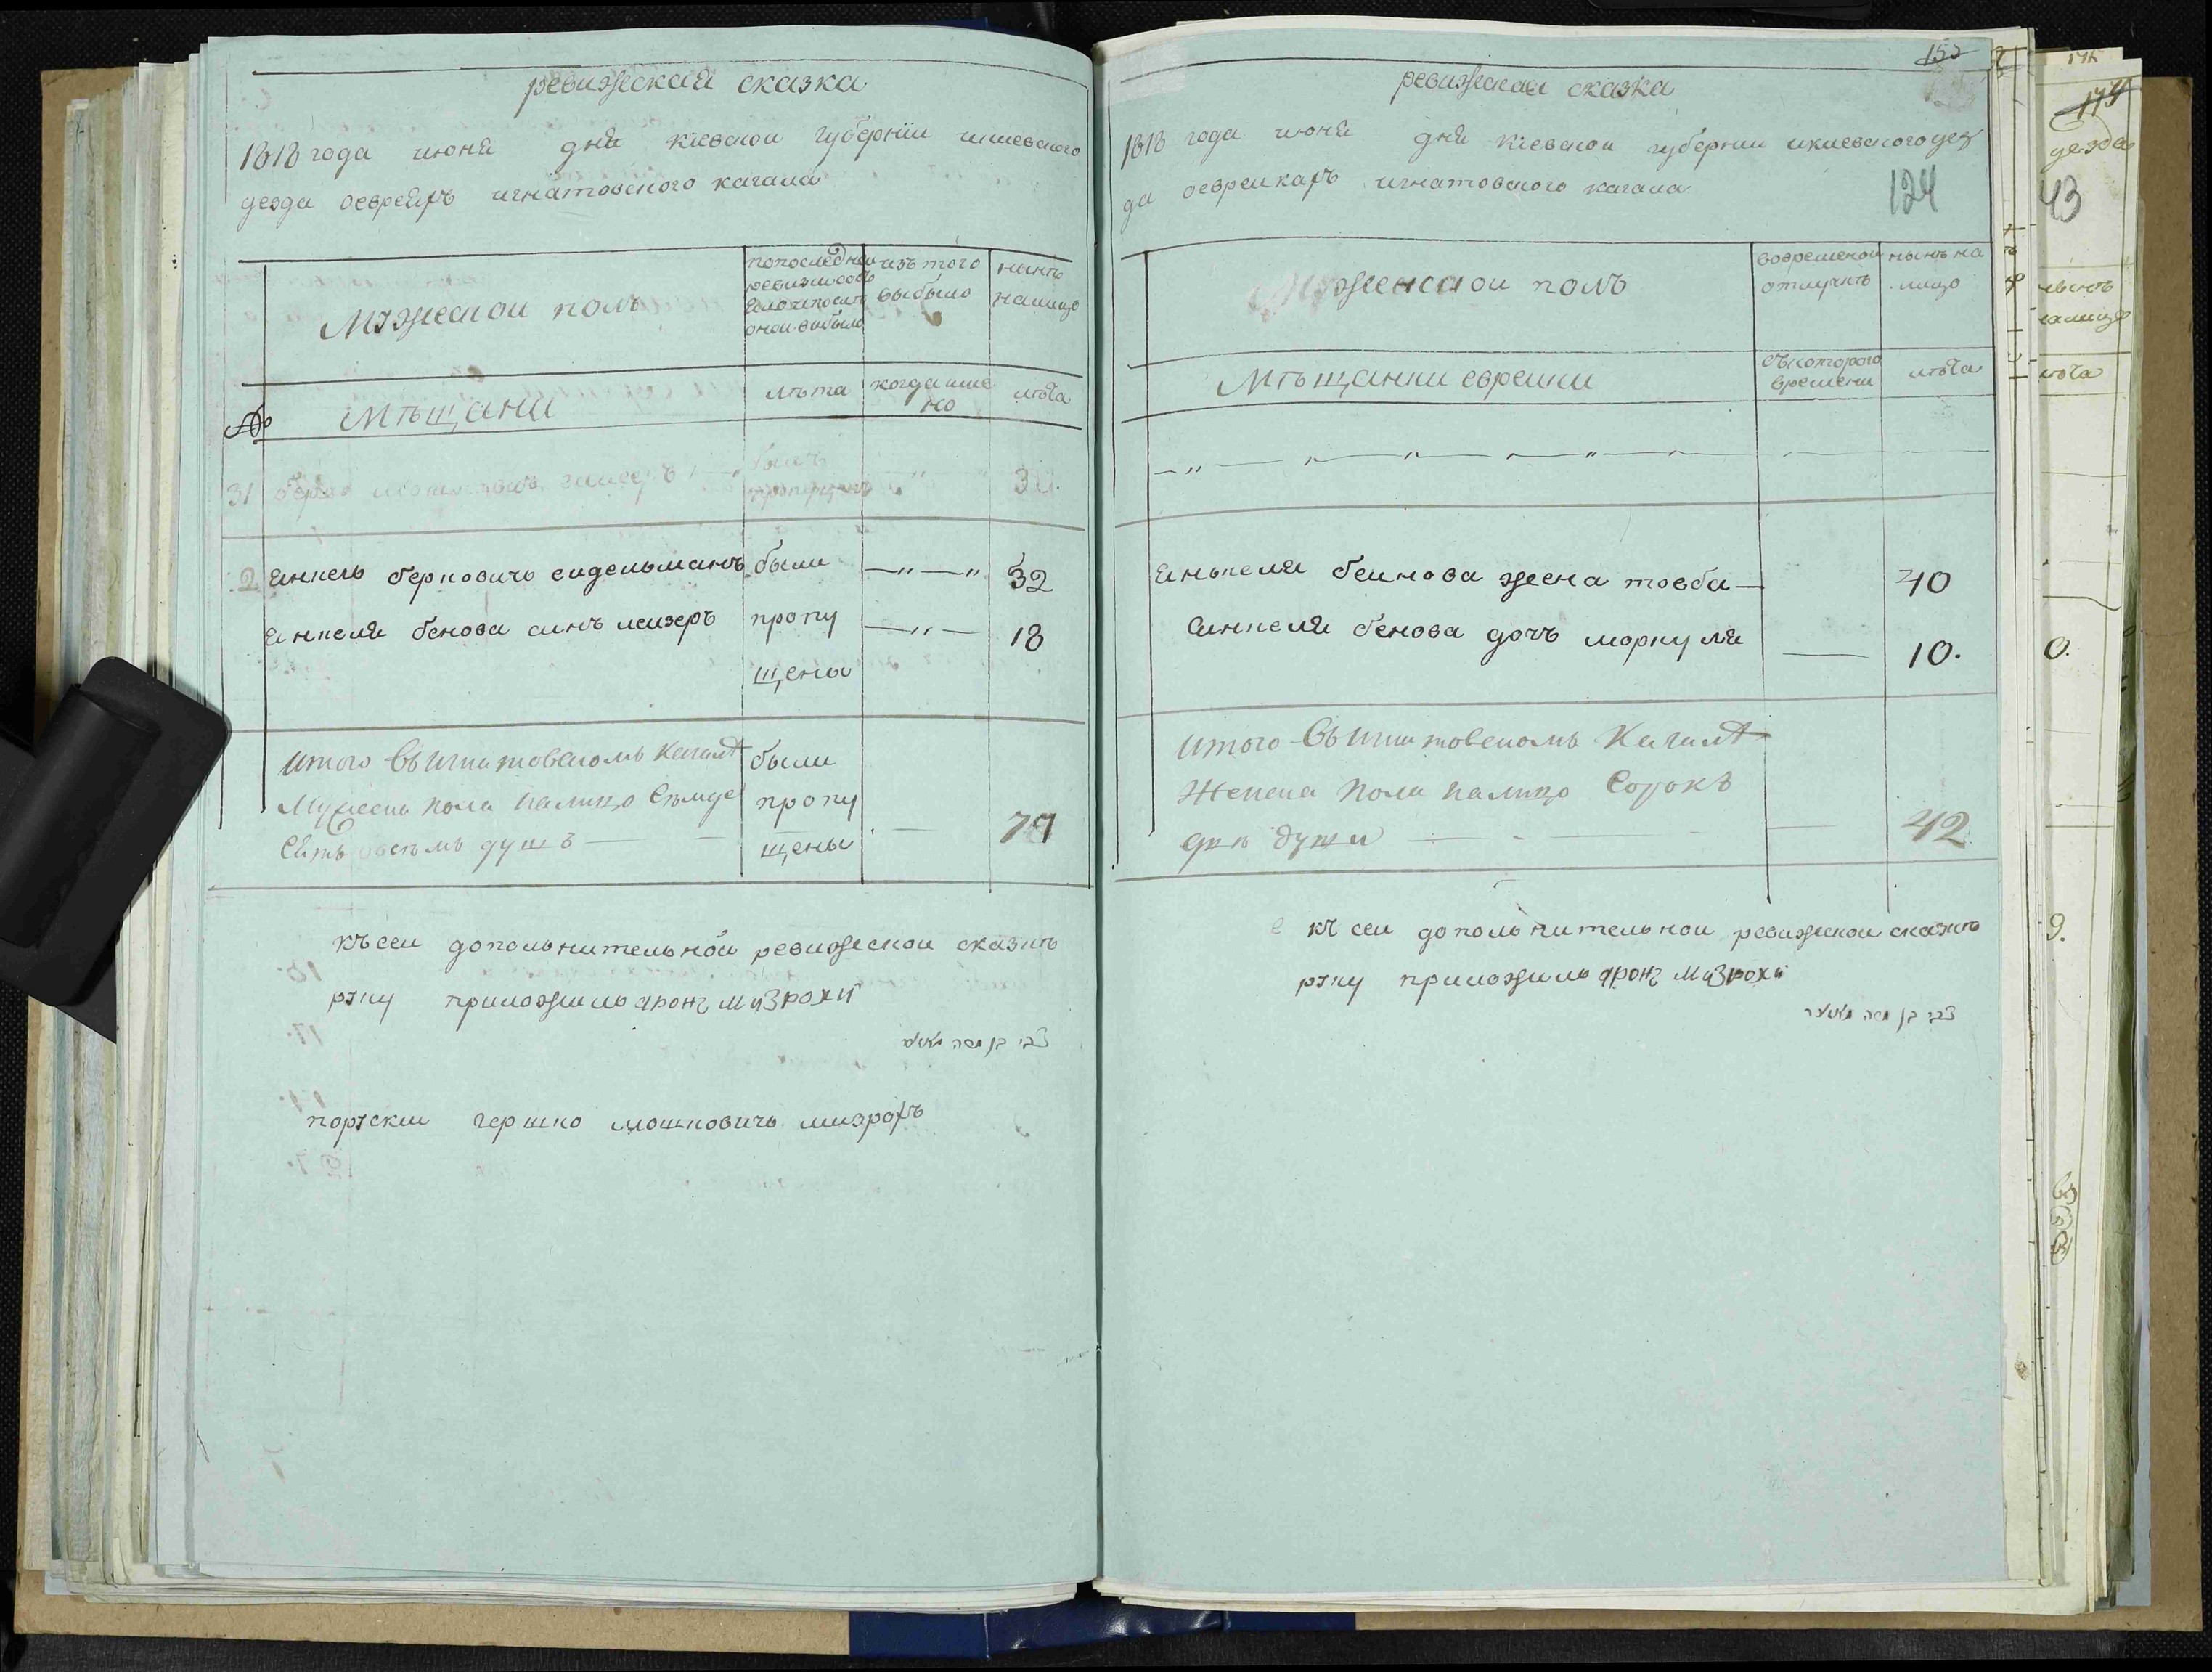 ревижская сказка
1818 года июня дня киевской губернїи икиевского
уезда оевреяхъ игнатовского кагала
Мужескои полъ
попоследнеи ревизии состояло ипосле онои выбыло
изъ того выбыло
нынѣ налицо
№
Мѣщани
лѣта
когда имяно
лѣта
31
былъ пропущенъ
—„—„
30.
2
Янкель берковичъ сидельманъ
были
—„—„
32
Янкеля бенова синъ лейзеръ
пропу
—„—
18
щены
итого въ Игнатовскомъ Кагалѣ
были
Мужеска пола налицо Семде
пропу
сятъ восемь душъ — —
щены
—
къ сеи дополнительнои ревижскои сказкѣ
руку приложилъ аронъ Мизрохи
צבי בן משה
порускии гершко мошковичъ мизрохъ
152
ревижская сказка
1818 года июня дня киевскои губернии икиевского уез
да оеврейкахъ игнатовского кагала
124
женскои полъ
вовременои отлучкѣ
нынѣ на лицо
Мѣщанки еврейки
съкоторого времени
лѣта
—„— „ — „ — „ — „ — „ —
Янькеля бейнова жена товба —
40
Янкеля бенова дочъ моркуля
—
10.
итого въ Игнатовскомъ Кагалѣ
Женска пола налицо Сорокъ
двѣ души — - —
—
42
къ сеи дополнительнои ревижскои сказкѣ
руку приложилъ аронъ Мизрохи
צבי בן משה
уезда
43
нынѣ
налицо
лѣта
0.
9.